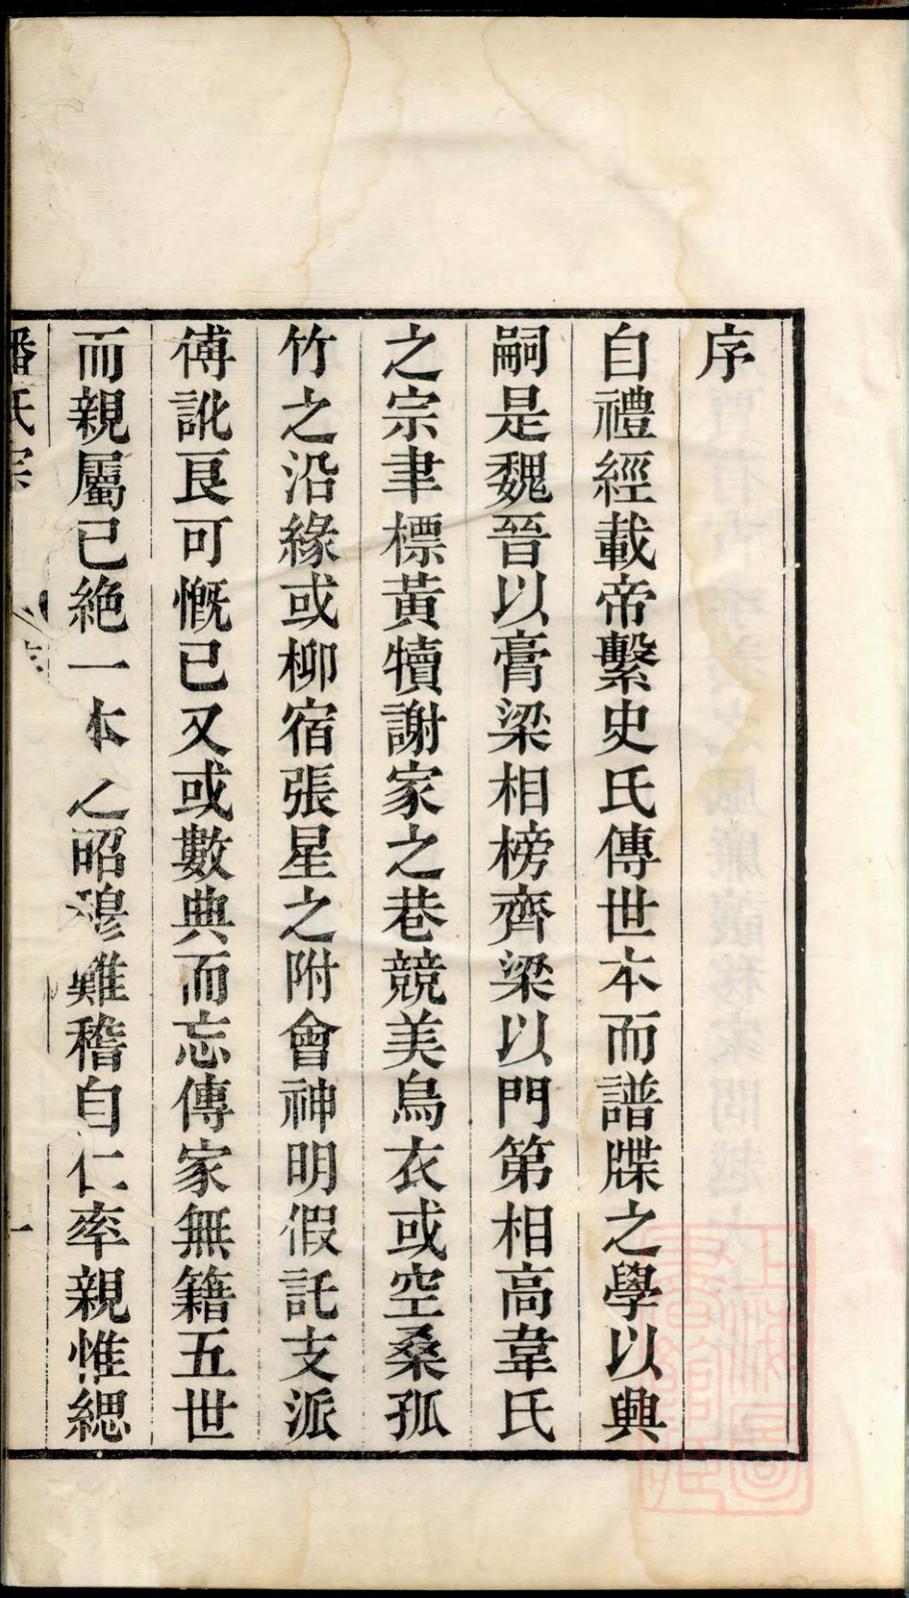 序
自禮經載帝繫史氏傳世本而譜牒之學以興
嗣是魏晉以膏梁相榜齊梁以門第相高韋氏
之宗聿標黃犢謝家之巷競美烏衣或空桑孤
竹之沿緣或柳宿張星之附會神明假託支派
傅訛良可慨已又或數典而忘傳家無籍五世
而親屬已絶一本之昭穆難稽自仁率親惟緦
潘氏宗
序
一